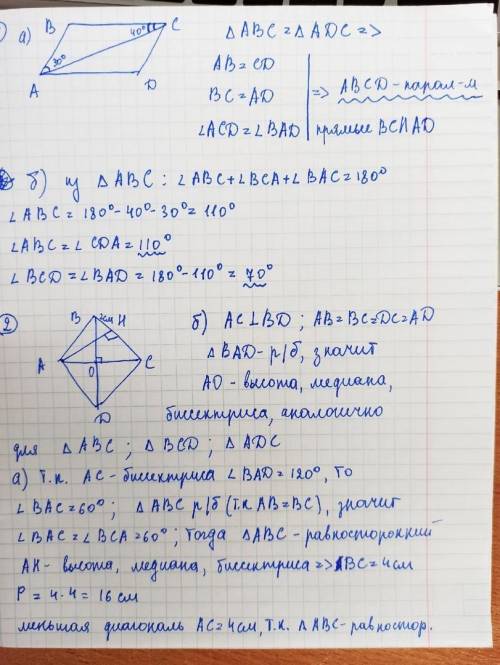 а) B 40° C △ABC = △ADC =>
30° AB = CD
A D BC = AD => ABCD - парал-м
∠ACD = ∠BAD прямые BC∥AD
б) из △ABC: ∠ABC + ∠BCA + ∠BAC = 180°
∠ABC = 180° - 40° - 30° = 110°
∠ABC = ∠CDA = 110°
∠BCD = ∠BAD = 180° - 110° = 70°
2 B 2см H б) AC⊥BD; AB=BC=DC=AD
A O C △BAD - р/б, значит
D AO - высота, медиана,
биссектриса, аналогично
для △ABC; △BCD; △ADC
а) т.к. AC - биссектриса ∠BAD = 120°, то
∠BAC = 60°; △ABC р/б (т.к AB = BC), значит
∠BAC = ∠BCA = 60°; тогда △ABC - равносторонний
AH - высота, медиана, биссектриса => BC = 4 см
P = 4·4 = 16 см
меньшая диагональ AC = 4 см, т.к. △ABC - равностор.